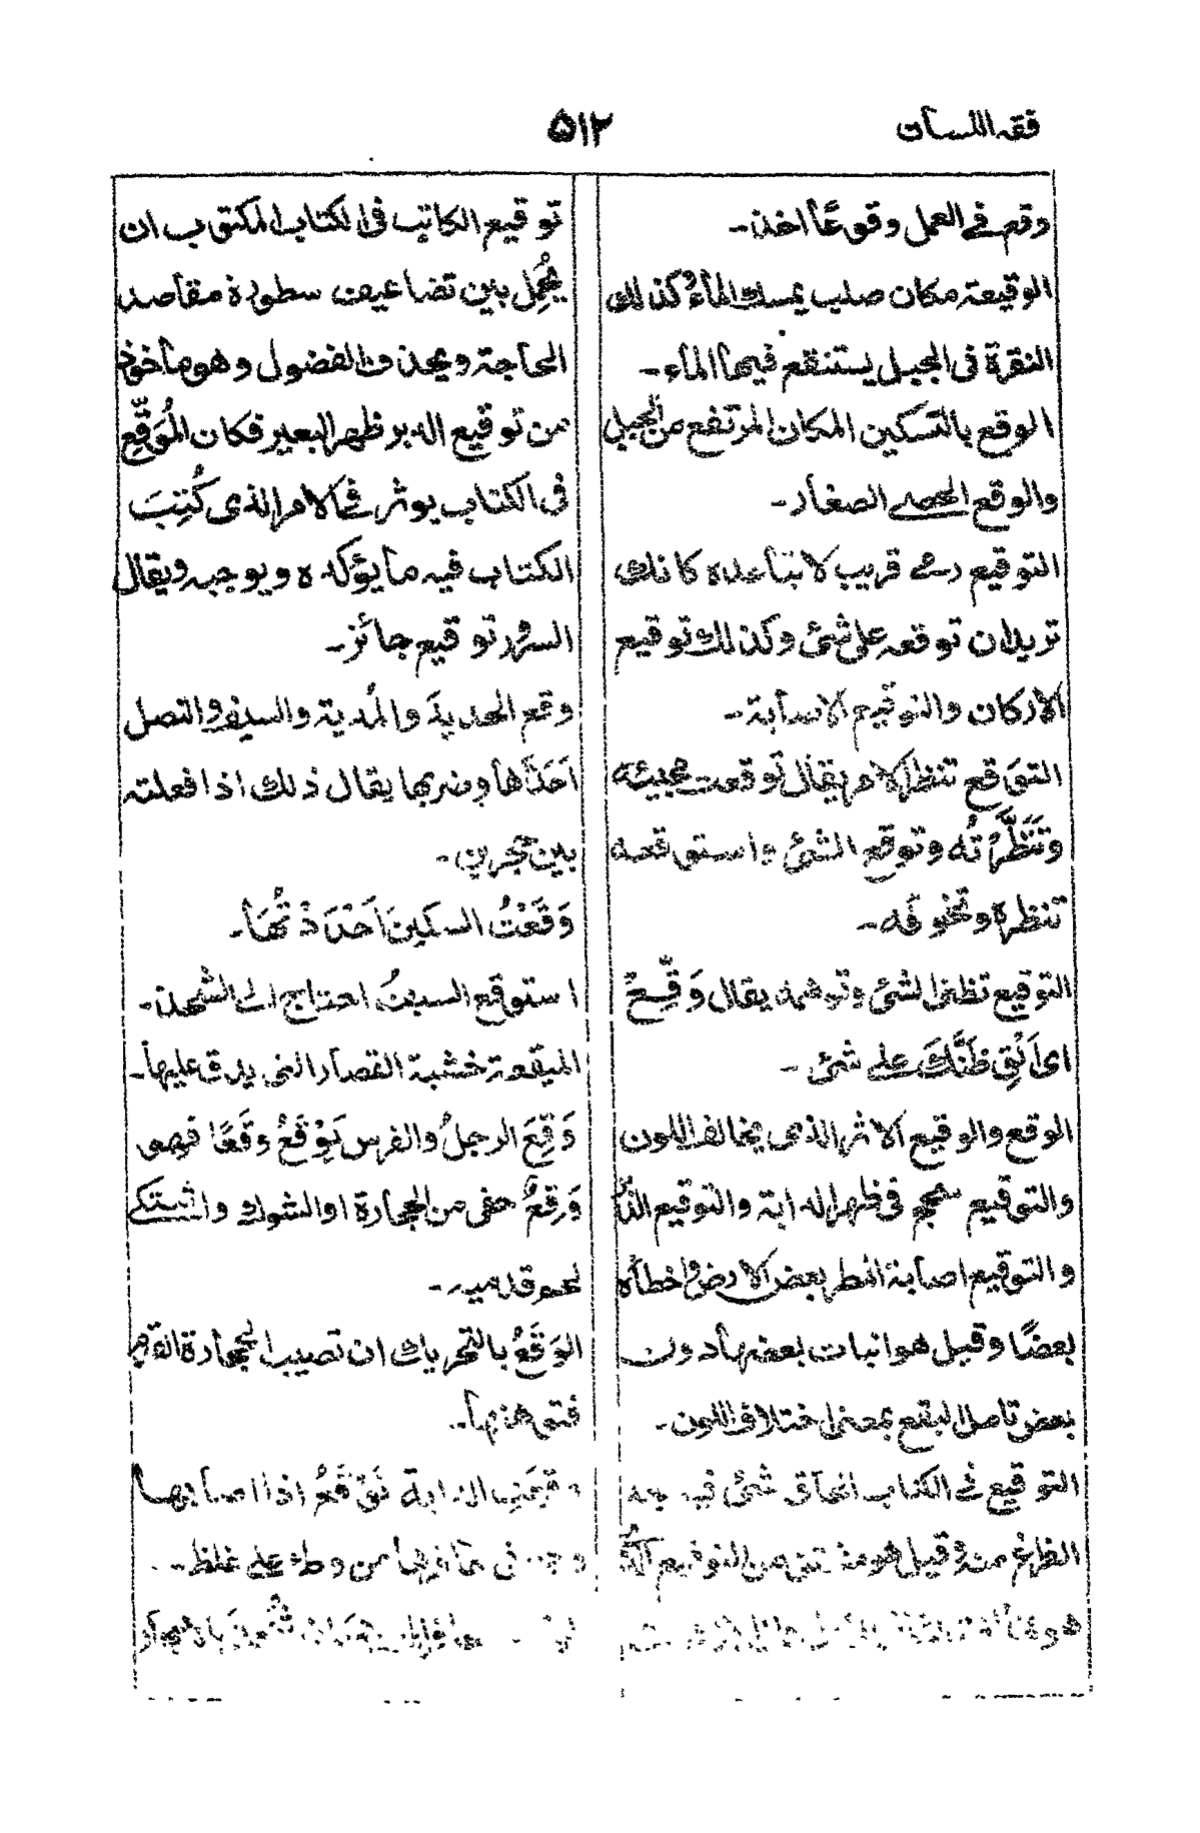 فقه اللسان
۵۱۲
وقع فی العمل وقوعًا اخذ۔
الوقیعة مکان صلب یمسك الماءُ وکذلك
النقرة فی الجبل یستنقع فیها الماء۔
الوقع بالتسکین المکان المرتفع من الجبل
والوقع الحصی الصغار۔
التوقیع رمی قریب لا تباعده کانك
ترید ان توقعه علی شئ وکذلك توقیع
الارکان والتوقیع الاصابة۔
التوقع تنظر الامر یقال توقعت مجیئه
وتَنَظَّرْتُه وتوقع الشئ واستوقعه
تنظره وتخوفه۔
التوقیع تظنی الشئ وتوهمه یقال وَقِّعْ
ای اَلْقِ ظَنَّكَ علی شئ۔
الوقع والوقیع الاثر الذی یخالف اللون
والتوقیع سحج فی ظهر الدابة والتوقیع
والتوقیع اصابة المطر بعض الارض واخطأه
بعضًا وقیل هو انبات بعضها دون
بعض تاصل البقع بمعنی اختلاف اللون۔
التوقیع فی الکتاب الحاق شئ فیه بعد
الفراغ منه وقیل هو مشتق من التوقیع الذی
هو
توقیع الکاتب فی الکتاب المکتوب ان
یُجْمِل بین تضاعیف سطوره مقاصد
الحاجة ویحذف الفضول وهو ماخوذ
من توقیع الدبر ظهر البعیر فکان المُوَقِّع
فی الکتاب یوثر فی الامر الذی کُتِبَ
الکتاب فیه ما یؤکده ویوجبه ویقال
السرور توقیع جائز۔
وقع الحدیدَ والمُدیة والسیف والنصل
اَحَدَّها وضربها یقال ذلك اذا فعلته
بین حجرین۔
وَقَعْتُ السکینَ اَحْدَدْتُهَا۔
استوقع السیفُ احتاج الی الشحذ۔
المیقعة خشبة القصار التی یدق علیها۔
وَقِعَ الرجلُ والفرس یَوْقَعُ وَقَعًا فهو
وَقِعٌ حفی من الحجارة او الشوك واشتکی
لحم قدمیه۔
الوَقَعُ بالتحریك ان تصیب الحجارة القدم
فتوهنها۔
وقعت الدابة تَوْقَعُ اذا اصابها
من وطء علی غلظ۔